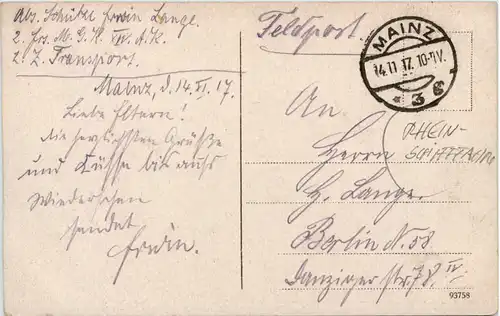 Abs. Schütze Erwin Lange.
2. Ers. M. G. K. XIV. A. K.
z. Z. Transport.
Mainz, d. 14. XI. 17.
Liebe Eltern!
die herzlichsten Grüße
und Küsse bis aufs
Wiedersehen
sendet
Erwin.
Feldpost.
MAINZ
14.11.17. 10-11V.
* 3 e
An
Herrn
H. Lange.
Berlin N. 58
Danziger Str. 78 IV.
RHEIN-
93758